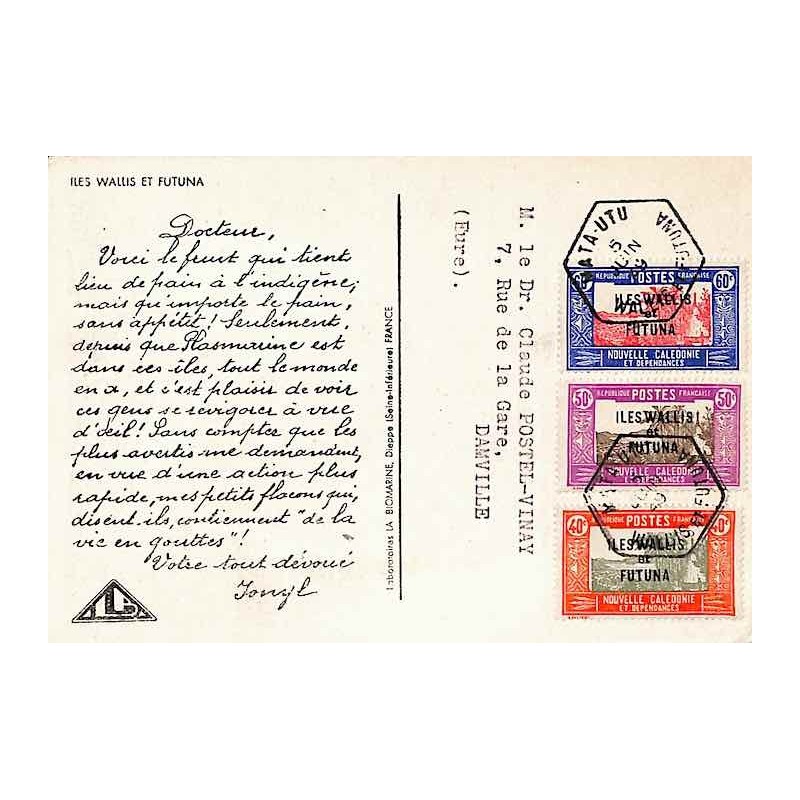 ILES WALLIS ET FUTUNA
Docteur,
Voici le fruit qui tient
lieu de pain à l'indigène;
mais qu'importe le pain,
sans appétit! Seulement,
depuis que Plasmarine est
dans ces îles, tout le monde
en a, et c'est plaisir de voir
ces gens se revigorer à vue
d'œil! Sans compter que les
plus avertis me demandent,
en vue d'une action plus
rapide, mes petits flacons qui,
disent-ils, contiennent "de la
vie en gouttes"!
Votre tout dévoué
Ionyl
Laboratoires LA BIOMARINE, Dieppe (Seine-Inférieure) FRANCE
M. le Dr. Claude POSTEL-VINAY
7, Rue de la Gare,
DAMVILLE
(Eure).
MATA-UTU
60c REPUBLIQUE POSTES FRANÇAISE 60c
ILES WALLIS
et
FUTUNA
NOUVELLE CALEDONIE
ET DEPENDANCES
50c REPUBLIQUE POSTES FRANÇAISE 50c
ILES WALLIS
et
FUTUNA
NOUVELLE CALEDONIE
ET DEPENDANCES
40c REPUBLIQUE POSTES FRANÇAISE 40c
ILES WALLIS
et
FUTUNA
NOUVELLE CALEDONIE
ET DEPENDANCES